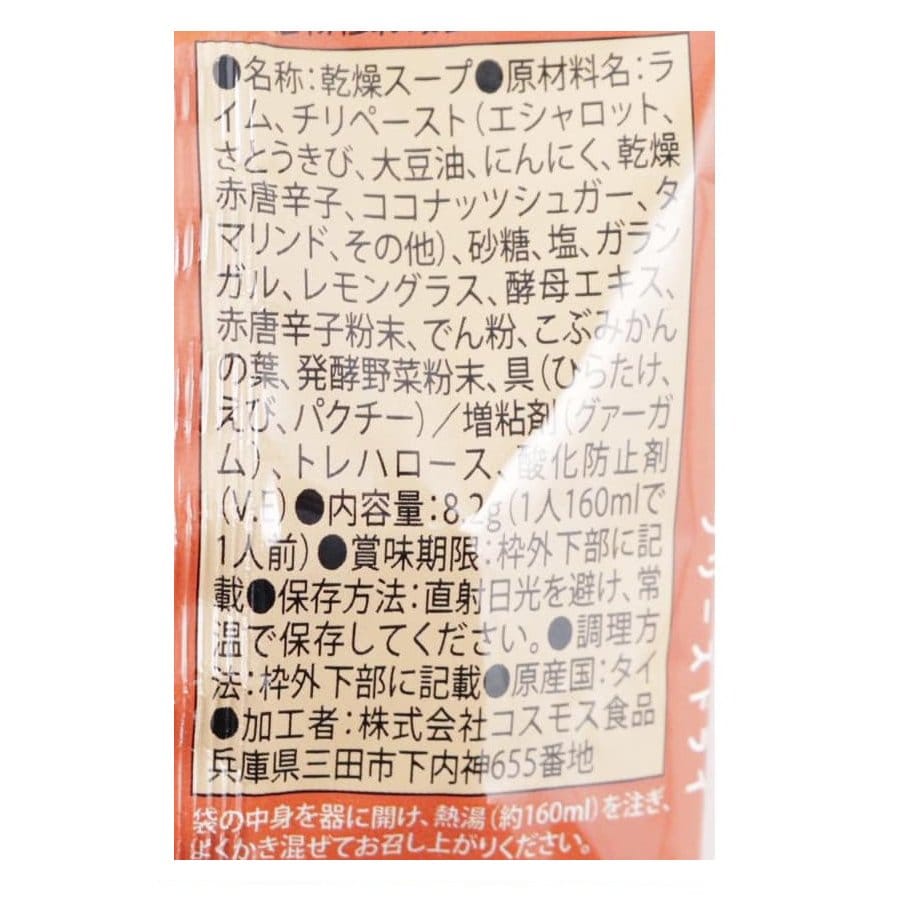 ●名称:乾燥スープ●原材料名:ラ
イム、チリペースト(エシャロット、
さとうきび、大豆油、にんにく、乾燥
赤唐辛子、ココナッツシュガー、タ
マリンド、その他)、砂糖、塩、ガラン
ガル、レモングラス、酵母エキス、
赤唐辛子粉末、でん粉、こぶみかん
の葉、発酵野菜粉末、具(ひらたけ、
えび、パクチー)/増粘剤(グァーガ
ム)、トレハロース、酸化防止剤
(V.E)●内容量:8.2g(1人160mlで
1人前)●賞味期限:枠外下部に記
載●保存方法:直射日光を避け、常
温で保存してください。●調理方
法:枠外下部に記載●原産国:タイ
●加工者:株式会社コスモス食品
兵庫県三田市下内神655番地
袋の中身を器に開け、熱湯(約160ml)を注ぎ、
よくかき混ぜてお召し上がりください。